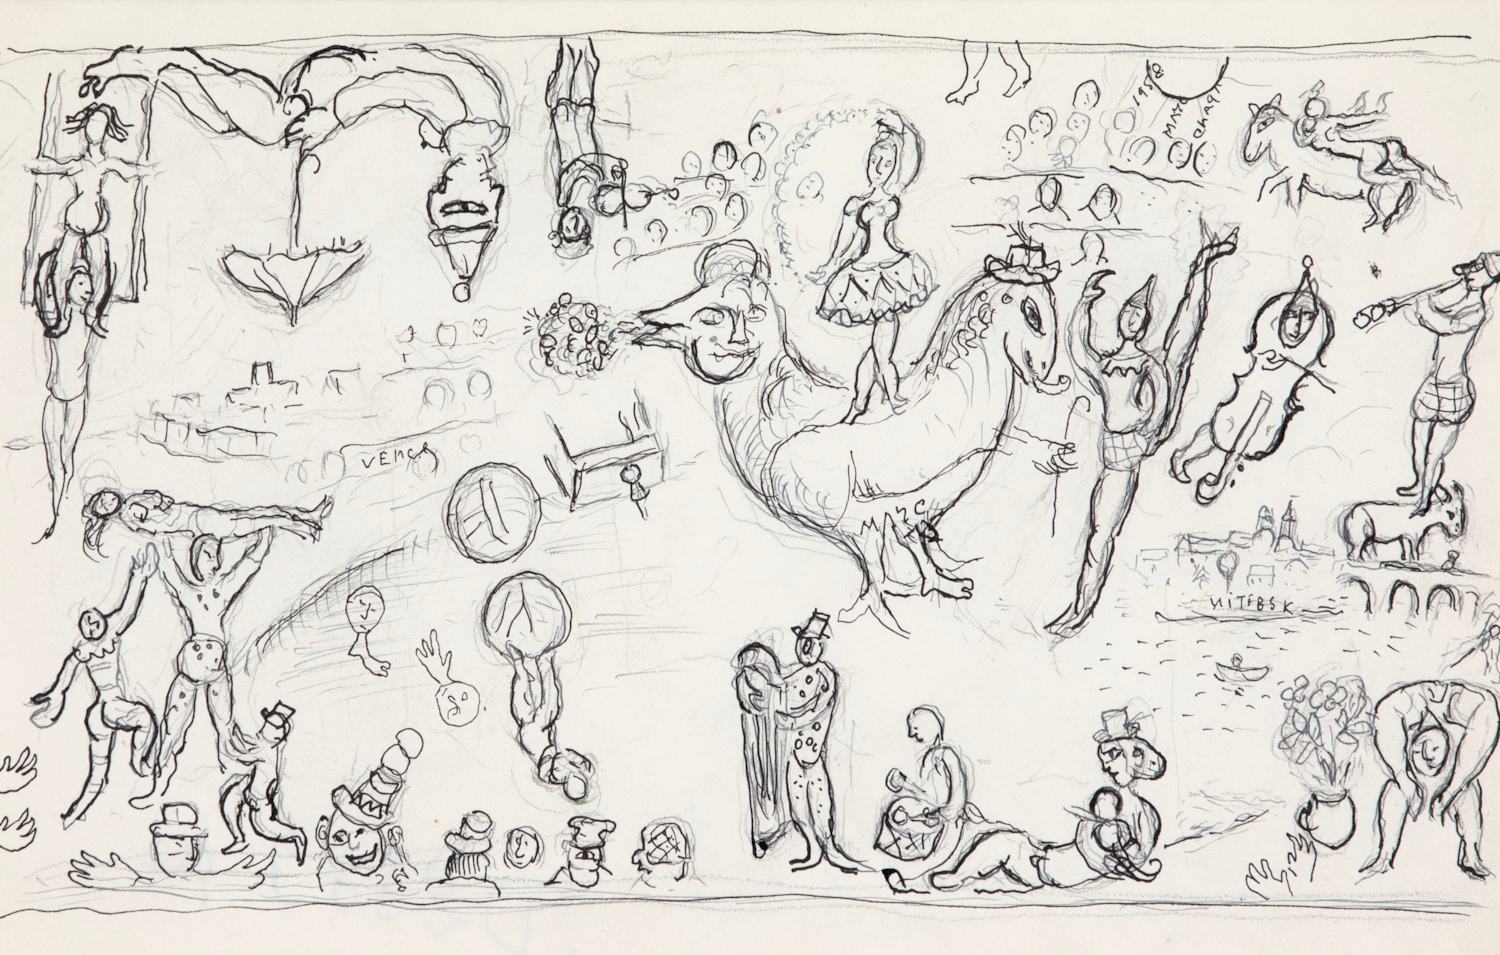 1958
MARC
Chag
VENCE
MARC
VITEBSK